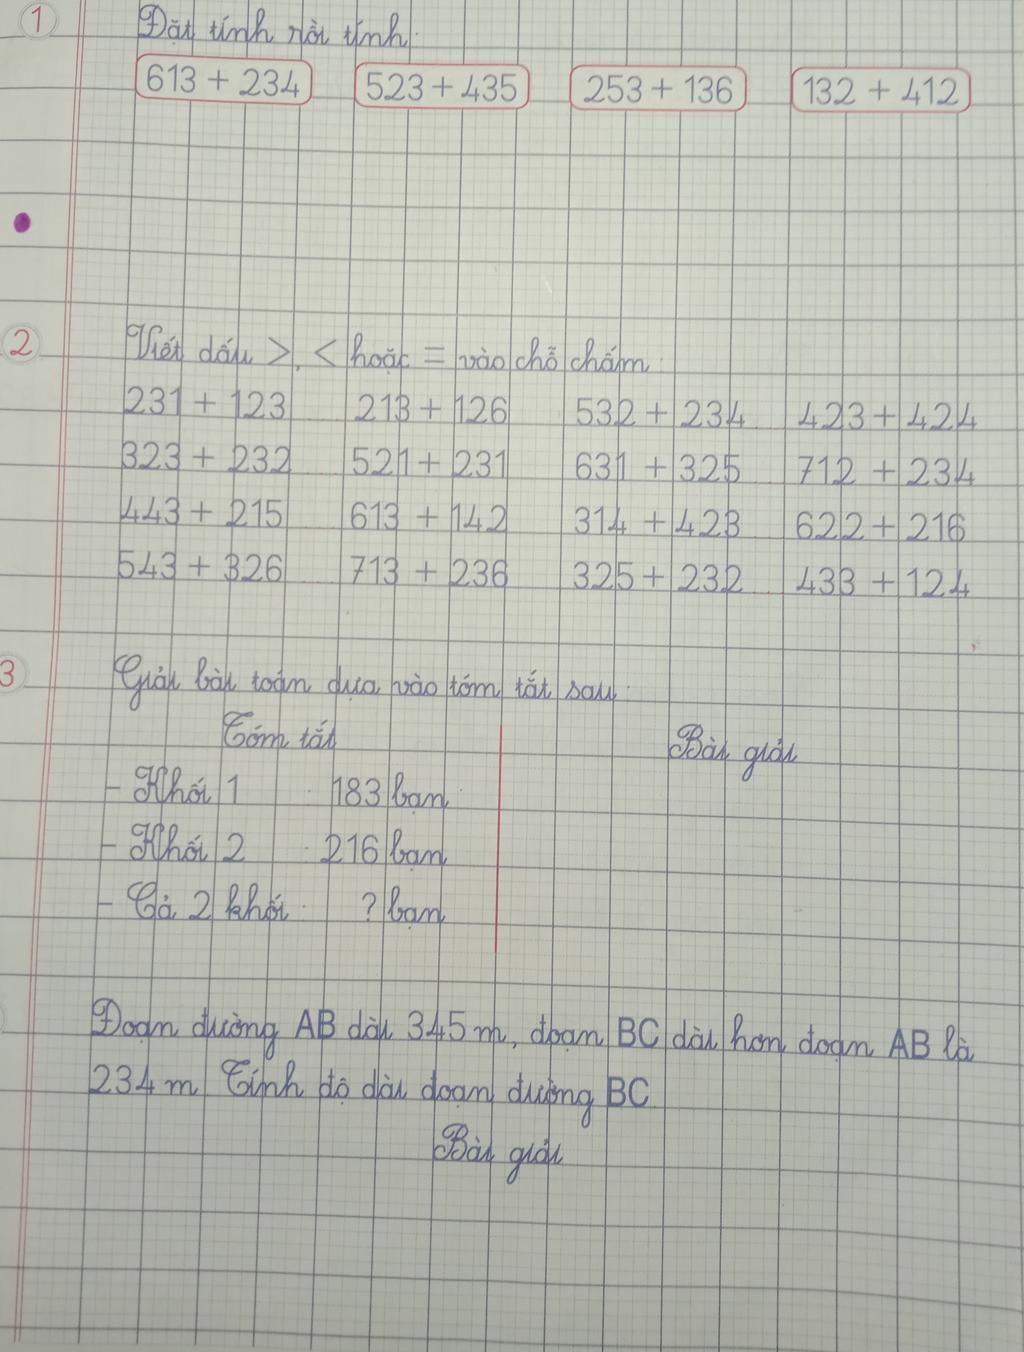 1 Đặt tính rồi tính.
613 + 234 523 + 435 253 + 136 132 + 412
2 Viết dấu >, < hoặc = vào chỗ chấm.
231 + 123 213 + 126 532 + 234 423 + 424
323 + 232 521 + 231 631 + 325 712 + 234
443 + 215 613 + 142 314 + 423 622 + 216
543 + 326 713 + 236 325 + 232 433 + 124
3 Giải bài toán dựa vào tóm tắt sau:
Tóm tắt Bài giải
- Khối 1 : 183 bạn
- Khối 2 : 216 bạn
- Cả 2 khối : ? bạn
Đoạn đường AB dài 345 m, đoạn BC dài hơn đoạn AB là
234 m. Tính độ dài đoạn đường BC
Bài giải